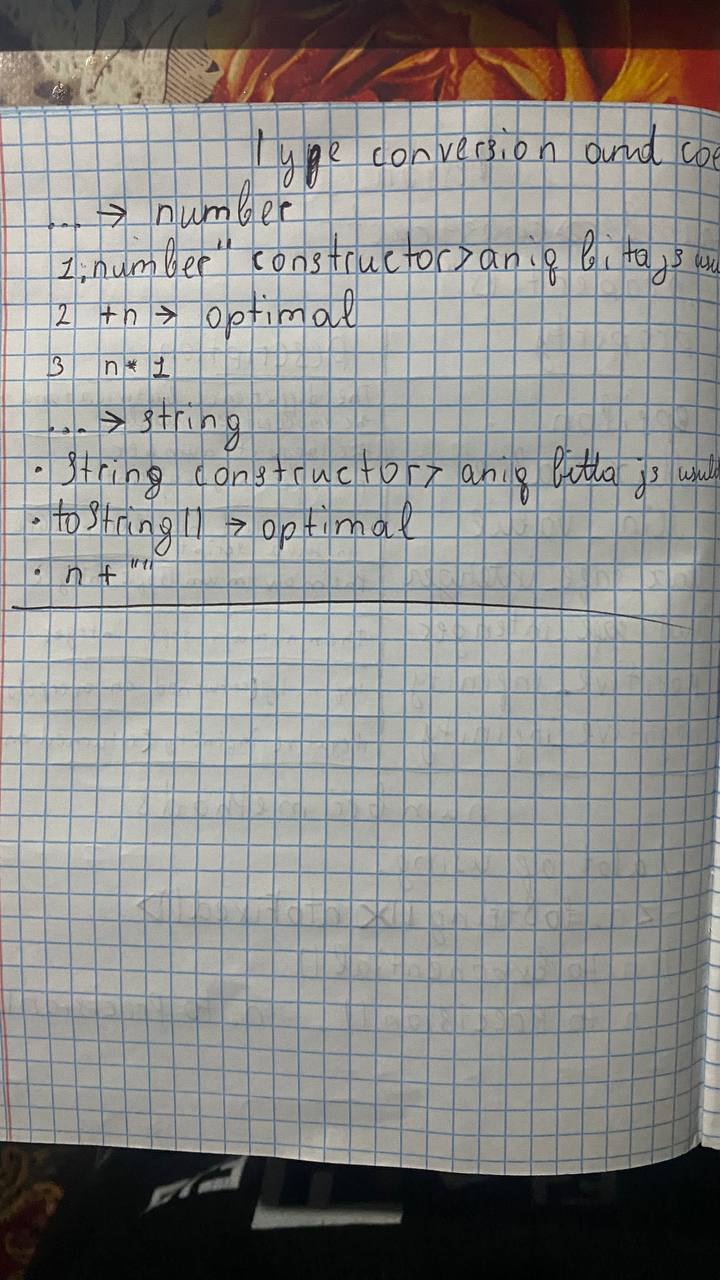 Type conversion and coe
... → number
1; number" constructor > aniq bita js usul
2 +n → optimal
3 n * 1
... → string
• String constructor > aniq bitta js usul
• toString() → optimal
• n + ""